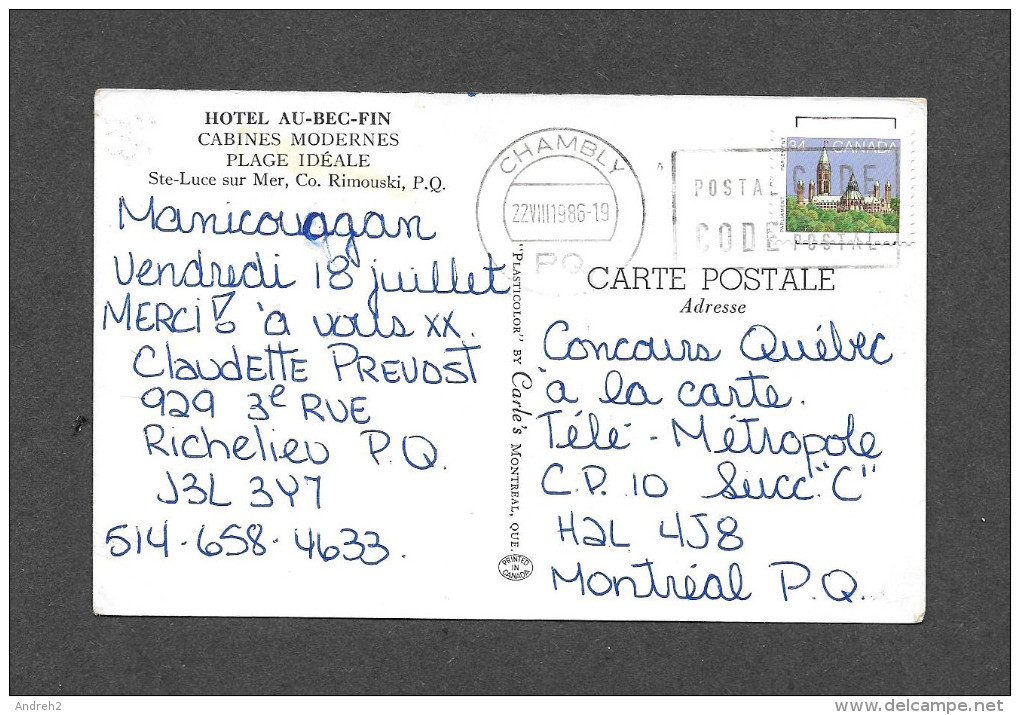 HOTEL AU-BEC-FIN
CABINES MODERNES
PLAGE IDÉALE
Ste-Luce sur Mer, Co. Rimouski, P.Q.
Manicouagan
Vendredi 18 juillet
MERCI à vous xx.
Claudette Prevost
929 3e Rue
Richelieu P.Q.
J3L 3Y7
514-658-4633.
"PLASTICOLOR" BY Carle's MONTREAL, QUE.
PRINTED IN CANADA
CHAMBLY
22VIII1986-19
PQ
POSTAL CODE
CODE POSTAL
34 CANADA
PARLIAMENT PARLEMENT
CARTE POSTALE
Adresse
Concours Québec
à la carte.
Télé-Métropole
C.P. 10 Succ. "C"
H2L 4J8
Montréal P.Q.
Andreh2
delcampe.net